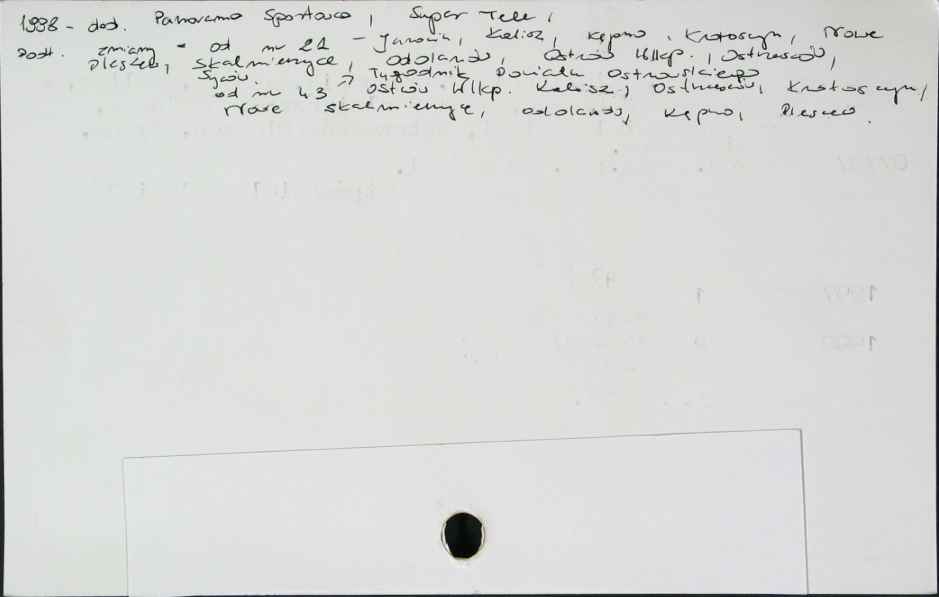 1998 - dod. Panorama Sportowa, Super Tele,
Podt. zmiany - od nr 21 - Jarocin, Kalisz, Kępno, Krotoszyn, Nowe
Pleszew, Skalmierzyce, Odolanów, Ostrów Wlkp., Ostrzeszów,
Syców. → Tygodnik Powiatu Ostrowskiego
od nr 43 Ostrów Wlkp. Kalisz, Ostrzeszów, Krotoszyn,
Nowe Skalmierzyce, Odolanów, Kępno, Pleszew.